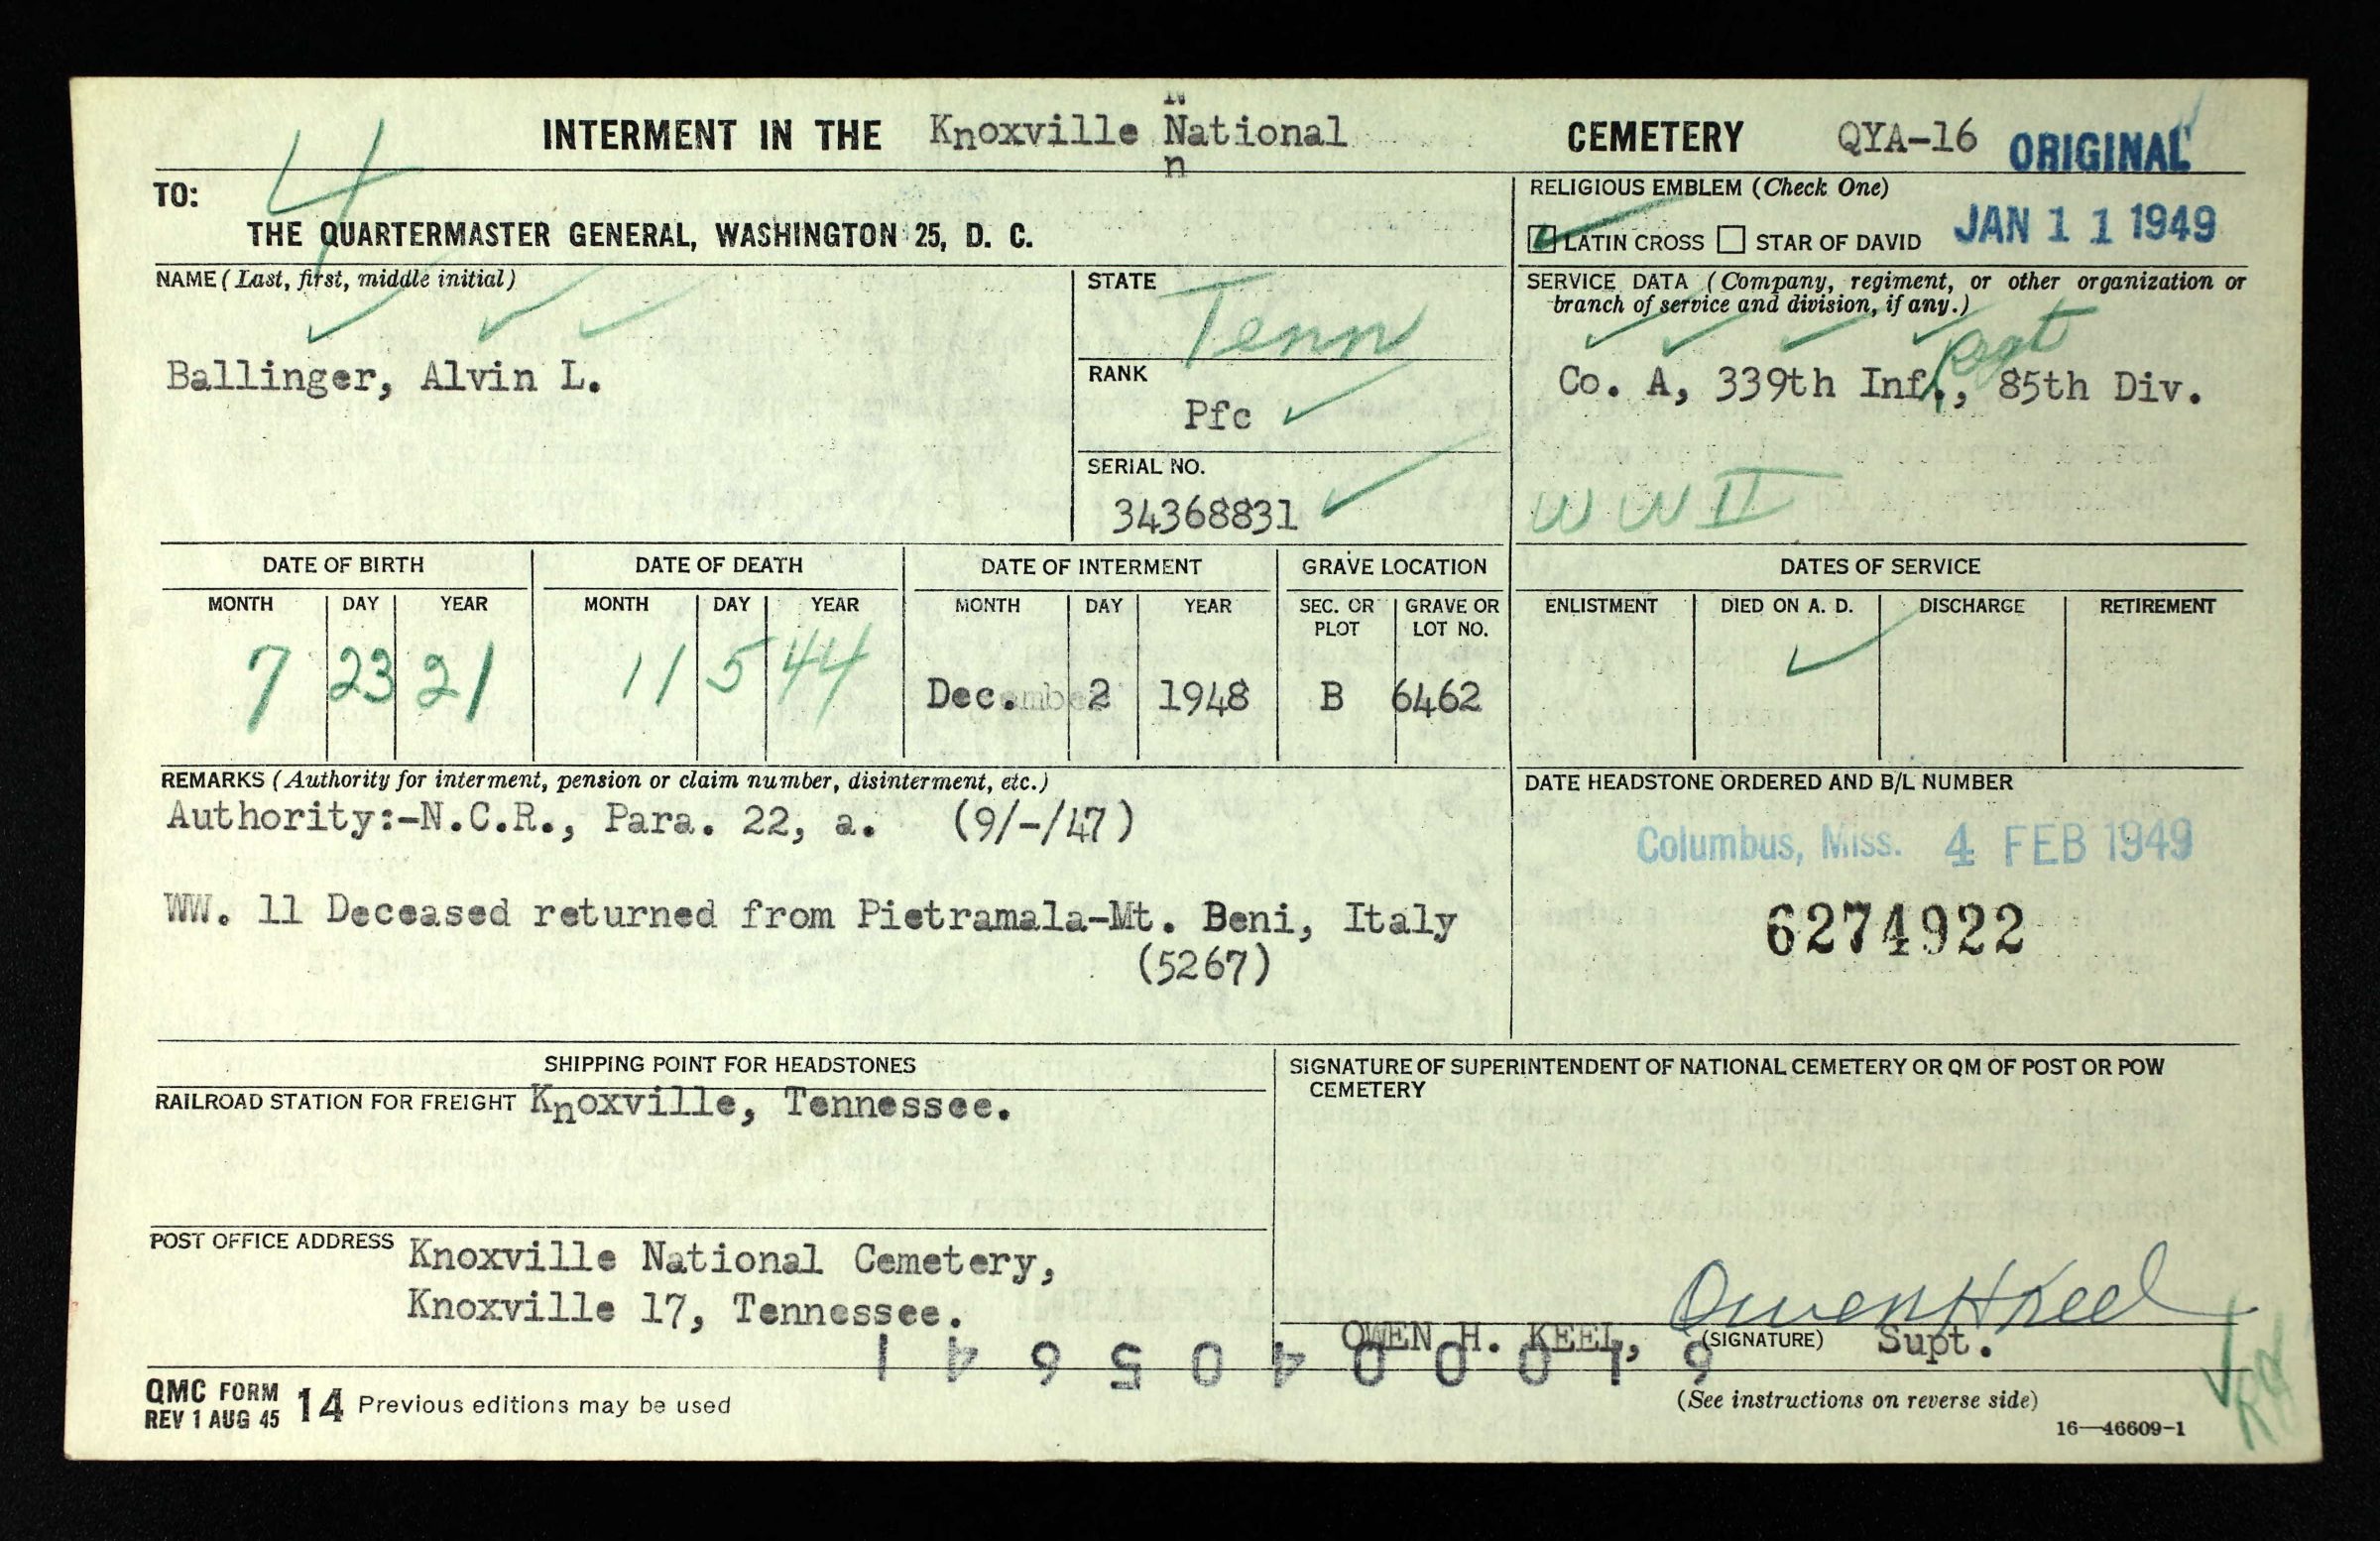 4
INTERMENT IN THE Knoxville National CEMETERY QYA-16 ORIGINAL
N
n
TO:
THE QUARTERMASTER GENERAL, WASHINGTON 25, D. C.
RELIGIOUS EMBLEM (Check One)
LATIN CROSS STAR OF DAVID JAN 11 1949
NAME (Last, first, middle initial)
Ballinger, Alvin L.
STATE
Tenn
RANK
Pfc
SERIAL NO.
34368831
SERVICE DATA (Company, regiment, or other organization or
branch of service and division, if any.)
Rgt
Co. A, 339th Inf., 85th Div.
WW II
DATE OF BIRTH DATE OF DEATH DATE OF INTERMENT GRAVE LOCATION DATES OF SERVICE
MONTH DAY YEAR MONTH DAY YEAR MONTH DAY YEAR SEC. OR PLOT GRAVE OR LOT NO. ENLISTMENT DIED ON A. D. DISCHARGE RETIREMENT
7 23 21 11 5 44 Dec. 2 1948 B 6462
REMARKS (Authority for interment, pension or claim number, disinterment, etc.)
Authority:-N.C.R., Para. 22, a. (9/-/47)
WW. 11 Deceased returned from Pietramala-Mt. Beni, Italy
(5267)
DATE HEADSTONE ORDERED AND B/L NUMBER
Columbus, Miss. 4 FEB 1949
6274922
SHIPPING POINT FOR HEADSTONES
RAILROAD STATION FOR FREIGHT Knoxville, Tennessee.
POST OFFICE ADDRESS Knoxville National Cemetery,
Knoxville 17, Tennessee.
SIGNATURE OF SUPERINTENDENT OF NATIONAL CEMETERY OR QM OF POST OR POW
CEMETERY
Owen H Keel
OWEN H. KEEL, (SIGNATURE) Supt.
14650400019
QMC FORM 14 Previous editions may be used
REV 1 AUG 45
(See instructions on reverse side)
16—46609-1